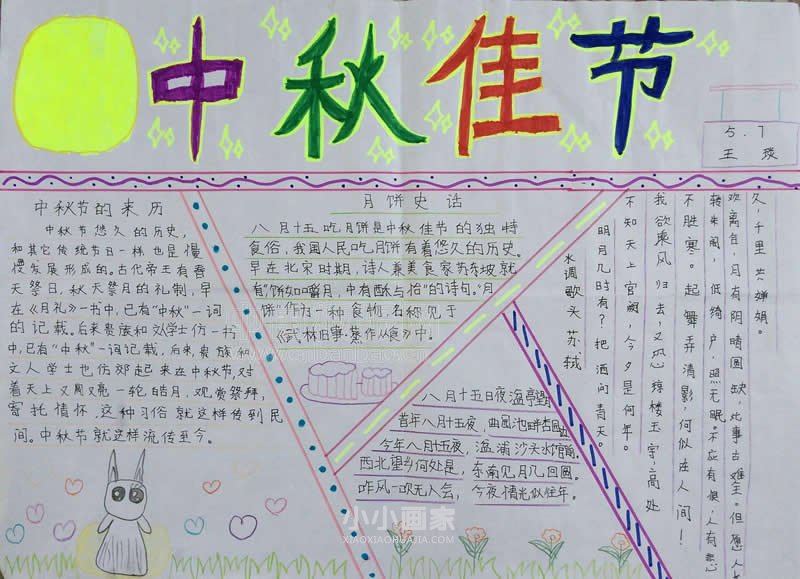 中秋佳节
5.7
王琰
中秋节的来历
中秋节悠久的历史,
和其它传统节日一样,也是慢
慢发展形成的。古代帝王有春
天祭日,秋天祭月的礼制,早
在《月礼》一书中,已有“中秋”一词
的记载。后来贵族和文学士仿一书
中,已有“中秋”一词记载,后来,贵族和
文人学士也仿郊起来在中秋节,对
着天上又圆又亮一轮皓月,观赏祭拜,
寄托情怀,这种习俗就这样传到民
间。中秋节就这样流传至今。
月饼史话
八月十五吃月饼是中秋佳节的独特
食俗,我国人民吃月饼有着悠久的历史。
早在北宋时期,诗人兼美食家苏东坡就
有“饼如嚼月,中有酥与怡”的诗句。“月
饼”作为一种食物,名称见于
《武林旧事·蒸作从食》中。
八月十五日夜湓亭望月
昔年八月十五夜,曲园池畔杏园边
今年八月十五夜,湓浦沙头水馆前。
西北望乡何处是,东南见月几回圆。
昨风一吹无人会,今夜清光似往年。
水调歌头 苏轼
明月几时有?把酒问青天。
不知天上宫阙,今夕是何年。
我欲乘风归去,又恐琼楼玉宇,高处
不胜寒。起舞弄清影,何似在人间!
转朱阁,低绮户,照无眠。不应有恨,人有悲
欢离合,月有阴晴圆缺,此事古难全。但愿人
久,千里共婵娟。
小小画家
XIAOXIAOHUAJIA.COM